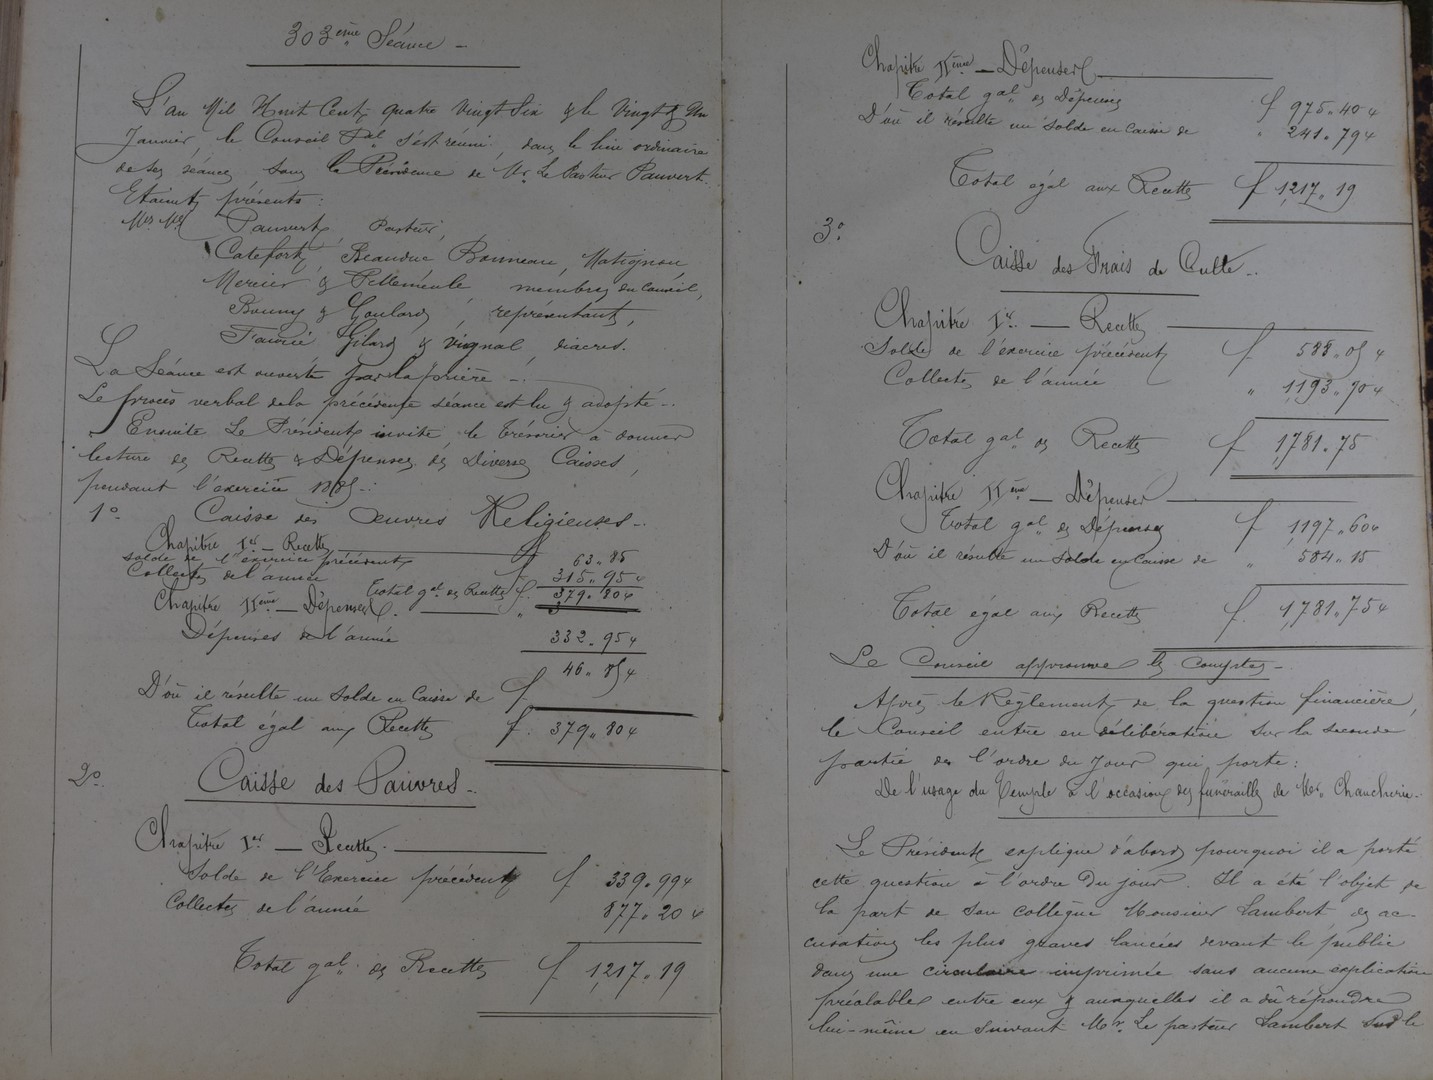 303ème Séance -
L'an Mil Huit Cent quatre Vingt Six & le Vingt & Un
Janvier, le Conseil Pal s'est réuni dans le lieu ordinaire
de ses séances sous la Présidence de Mr Le Pasteur Pauvert.
Etaient présents :
Mrs Mrs Pauvert Pasteur,
Catefort, Beauduc Bonneau, Matignon
Mercier & Pellémeule membres du Conseil,
Bonny & Goulard, représentants,
Faurie Gilard & Vignal, diacres.
La Séance est ouverte par la prière -.
Le procès verbal de la précédente séance est lu & adopté -.
Ensuite Le Président invite le trésorier à donner
lecture des Recettes & Dépenses des Diverses Caisses,
pendant l'exercice 1885 -.
1° Caisse des Œuvres Religieuses -.
Chapitre Ier - Recettes
Solde de l'exercice précédent f 63.. 85
Collectes de l'année 315.. 95 "
Total gal des Recettes f. 379.. 80 "
Chapitre IIème - Dépenses.
Dépenses de l'année 332.. 95 "
D'où il résulte un Solde en Caisse de f 46.. 85 "
Total égal aux Recettes f. 379.. 80 "
2° Caisse des Pauvres -.
Chapitre Ier - Recettes.
Solde de l'Exercice précédent f 339.. 99 "
Collectes de l'année 877.. 20 "
Total gal des Recettes f 1,217.. 19
Chapitre IIème - Dépenses
Total gal des Dépenses f 975.. 40 "
D'où il résulte un Solde en Caisse de " 241.. 79 "
Total égal aux Recettes f 1,217.. 19
3° Caisse des Frais de Culte -.
Chapitre Ier - Recettes
Solde de l'exercice précédent f 588.. 05 "
Collectes de l'année " 1,193.. 70 "
Total gal des Recettes f 1,781.. 75
Chapitre IIème - Dépenses
Total gal des Dépenses f 1,197.. 60 "
D'où il résulte un Solde en Caisse de " 584.. 15
Total égal aux Recettes f. 1,781.. 75 "
Le Conseil approuve les comptes -
Après le Règlement de la question financière,
le Conseil entre en délibération sur la seconde
partie de l'ordre du jour qui porte :
De l'usage du Temple à l'occasion des funérailles de Mr. Chaucherie -.
Le Président explique d'abord pourquoi il a porté
cette question à l'ordre du jour. Il a été l'objet de
la part de son collègue Monsieur Lambert, des ac-
cusations les plus graves lancées devant le public
dans une circulaire imprimée sans aucune explication
préalable entre eux & auxquelles il a dû répondre
lui-même en suivant Mr. Le pasteur Lambert sur le